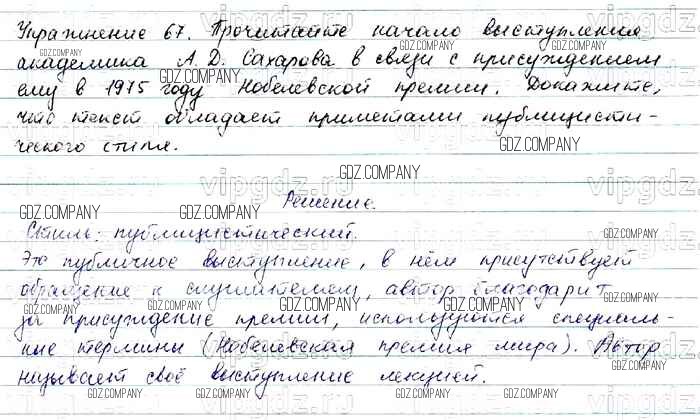 Упражнение 67. Прочитайте начало выступления
академика А. Д. Сахарова в связи с присуждением
ему в 1975 году Нобелевской премии. Докажите,
что текст обладает приметами публицисти-
ческого стиля.
Решение.
Стиль: публицистический.
Это публичное выступление, в нём присутствует
обращение к слушателем, автор благодарит
за присуждение премии, используются специаль-
ные термины (Нобелевская премия мира). Автор
называет своё выступление лекцией.